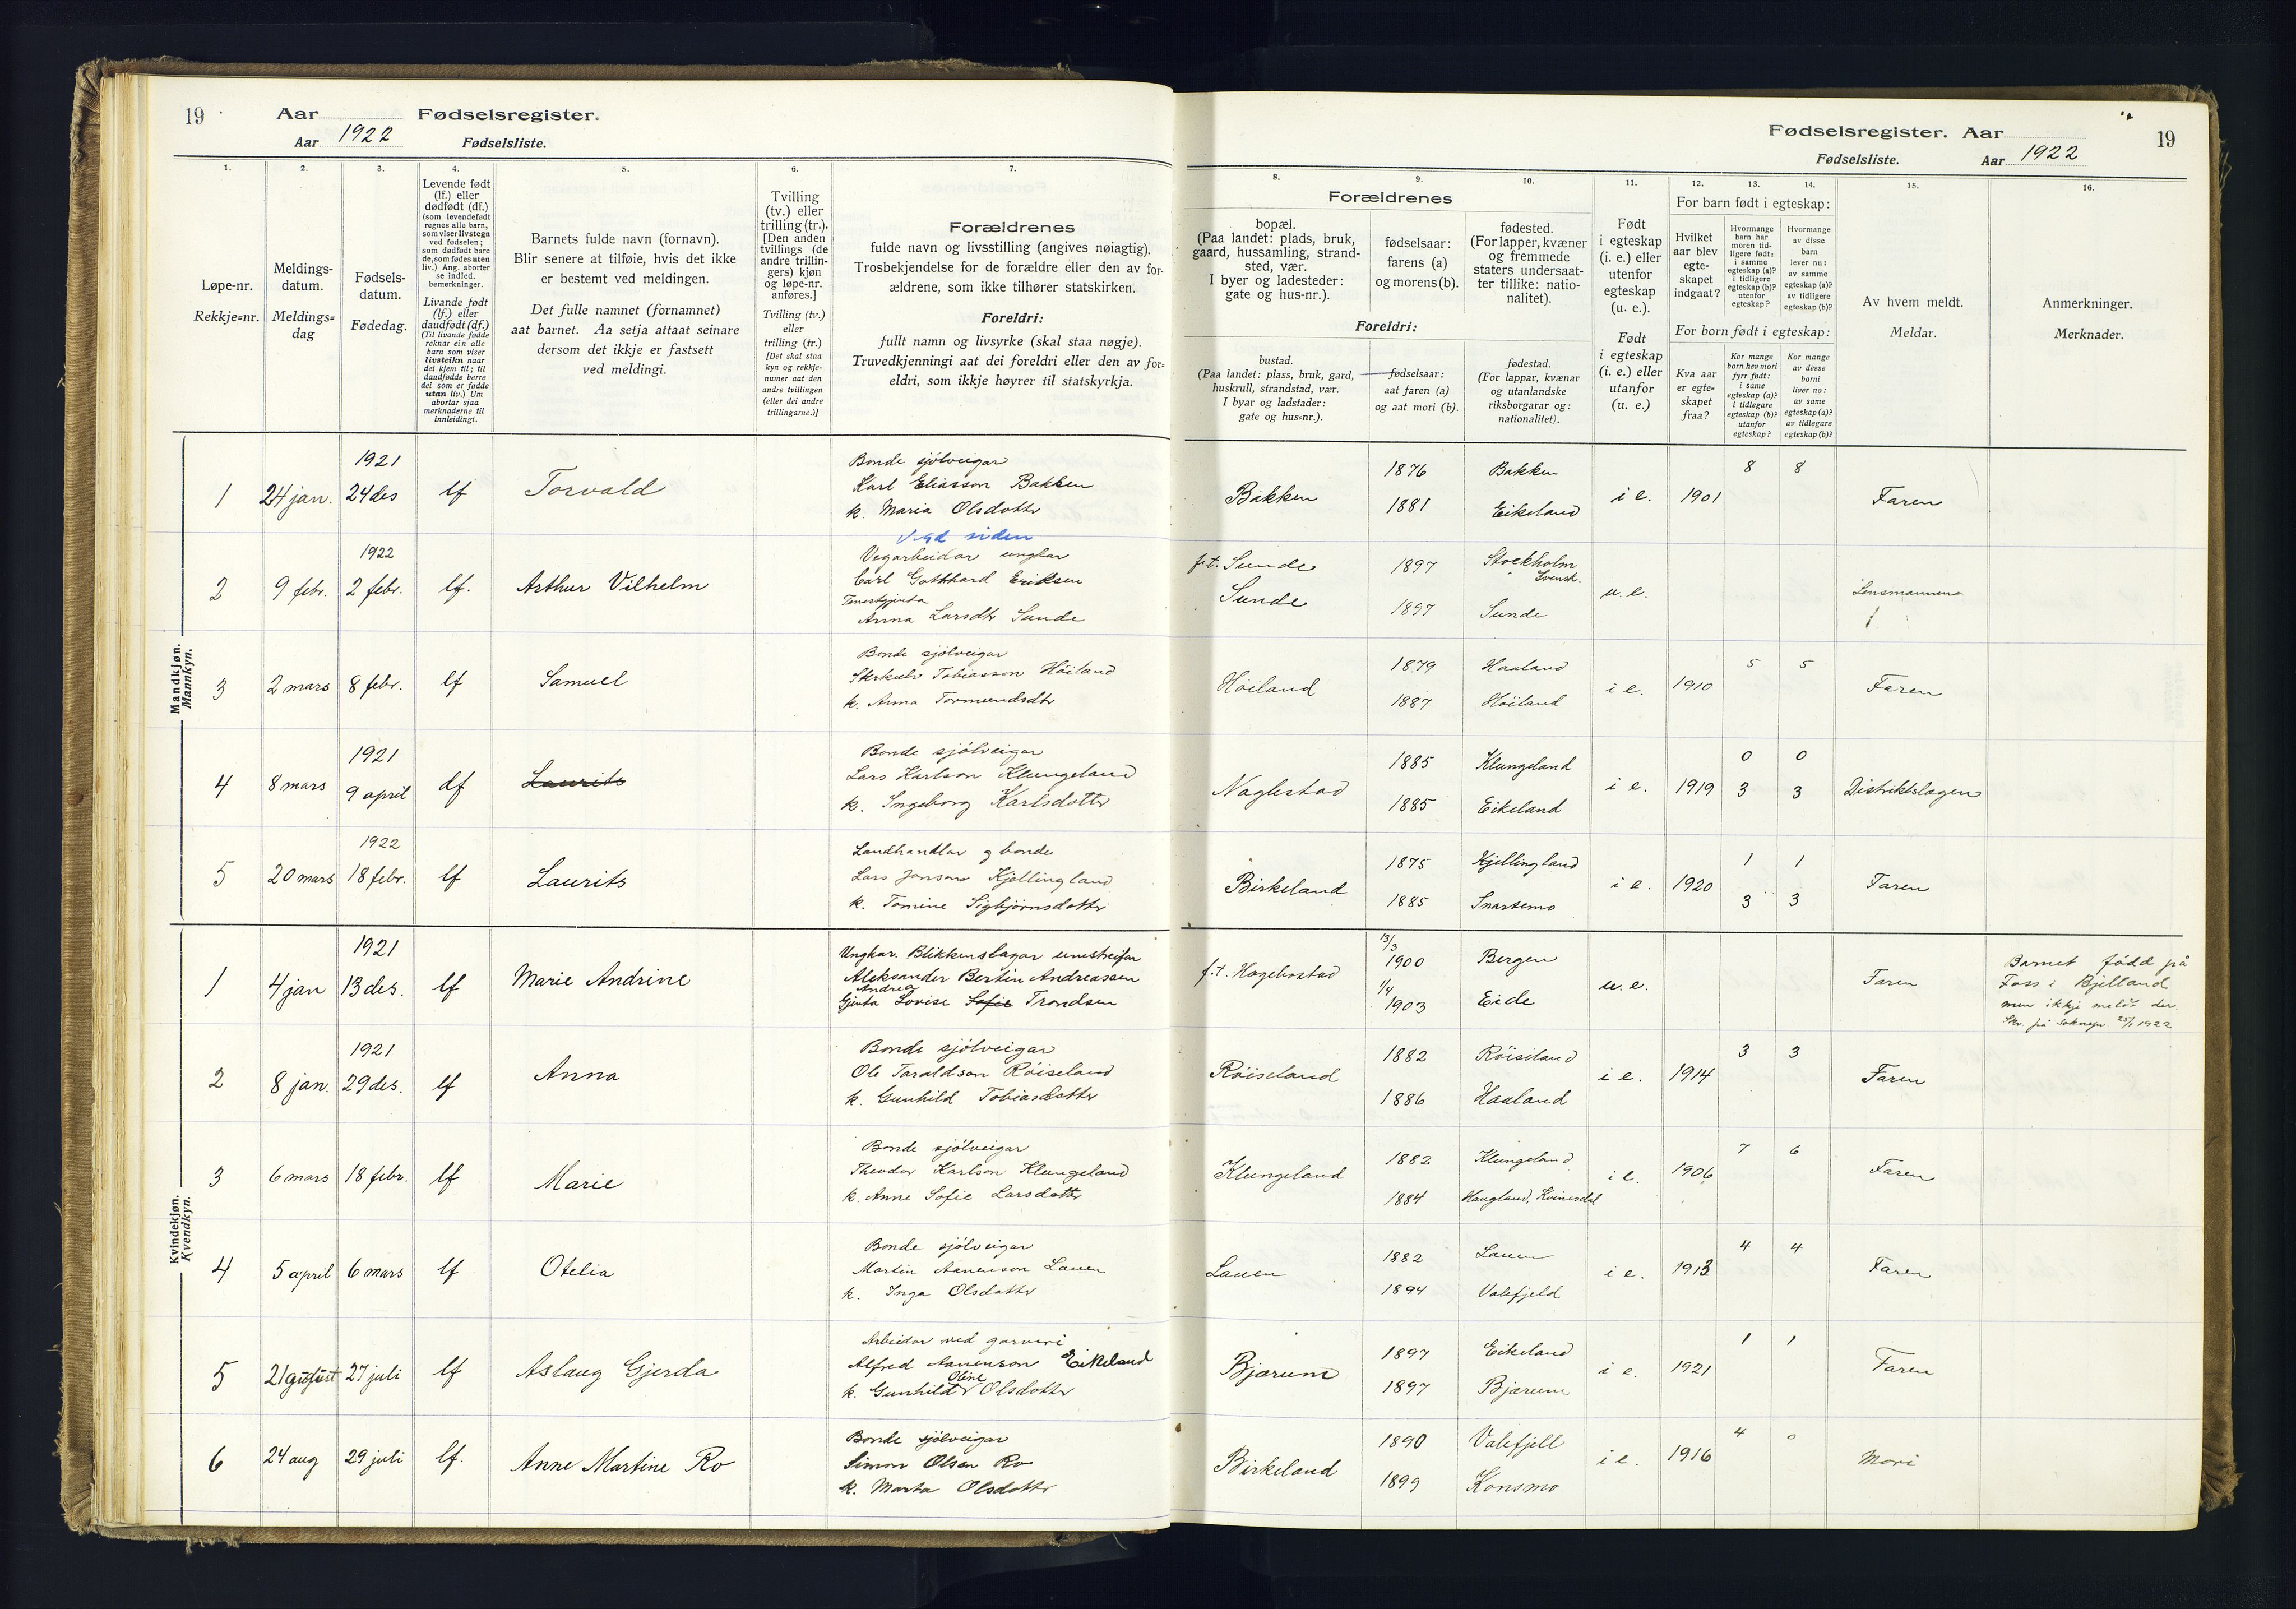 19 Aar Fødselsregister.
Aar 1922 Fødselsliste.
Fødselsregister. Aar 19
Fødselsliste. Aar 1922
1. 2. 3. 4. 5. 6. 7.
Løpe-nr.
Rekkje=nr.
Meldings-
datum.
Meldings=
dag
Fødsels-
datum.
Fødedag.
Levende født
(lf.) eller
dødfødt (df.)
(som levendefødt
regnes alle barn,
som viser livstegn
ved fødselen;
som dødfødt bare
de, som fødes uten
liv.) Ang. aborter
se indled.
bemerkninger.
Livande født
(lf.) eller
daudfødt (df.)
(Til livande fødde
reknar ein alle
barn som viser
livsteikn naar
dei kjem til; til
daudfødde berre
dei som er fødde
utan liv.) Um
abortar sjaa
merknaderne til
innleidingi.
Barnets fulde navn (fornavn).
Blir senere at tilføie, hvis det ikke
er bestemt ved meldingen.
Det fulle namnet (fornamnet)
aat barnet. Aa setja attaat seinare
dersom det ikkje er fastsett
ved meldingi.
Tvilling
(tv.) eller
trilling (tr.).
[Den anden
tvillings (de
andre trillin-
gers) kjøn
og løpe-nr.
anføres.]
Tvilling (tv.)
eller
trilling (tr.)
[Det skal staa
kyn og rekkje-
numer aat den
andre tvillingen
(eller dei andre
trillingarne.)]
Forældrenes
fulde navn og livsstilling (angives nøiagtig).
Trosbekjendelse for de forældre eller den av for-
ældrene, som ikke tilhører statskirken.
Foreldri:
fullt namn og livsyrke (skal staa nøgje).
Truvedkjenningi aat dei foreldri eller den av for=
eldri, som ikkje høyrer til statskyrkja.
8. 9. 10. 11. 12. 13. 14. 15. 16.
Forældrenes
bopæl.
(Paa landet: plads, bruk,
gaard, hussamling, strand-
sted, vær.
I byer og ladesteder:
gate og hus-nr.).
fødselsaar:
farens (a)
og morens (b).
fødested.
(For lapper, kvæner
og fremmede
staters undersaat-
ter tillike: natio-
nalitet).
Foreldri:
bustad.
(Paa landet: plass, bruk, gard,
huskrull, strandstad, vær.
I byar og ladstader:
gate og hus=nr.).
fødselsaar:
aat faren (a)
og aat mori (b).
fødestad.
(For lappar, kvænar
og utanlandske
riksborgarar og:
nationalitet).
Født
i egteskap
(i. e.) eller
utenfor
egteskap
(u. e.).
Født
i egteskap
(i. e.) eller
utanfor
(u. e.)
For barn født i egteskap:
Hvilket
aar blev
egte-
skapet
indgaat?
Hvormange
barn har
moren tid-
ligere født:
i samme
egteskap (a)?
i tidligere
egteskap (b)?
utenfor
egteskap?
Hvormange
av disse
barn
lever nu:
av samme
egteskap (a)?
av tidligere
egteskap (b)?
For born født i egteskap:
Kva aar
er egte=
skapet
fraa?
Kor mange
born hev mori
fyrr født:
i same
egteskap (a)?
i tidlegare
egteskap (b)?
utanfor
egteskap?
Kor mange
av desse
borni
liver no:
av same
egteskap (a)?
av tidlegare
egteskap (b)?
Av hvem meldt.
Meldar.
Anmerkninger.
Merknader.
Mandkjøn.
Mannkyn.
1921 Bonde sjölveigar 1876 Bakken 8 8
1 24 jan. 24 des lf Torvald Karl Eliasson Bakken Bakken i e. 1901 Faren
k. Maria Olsdottr 1881 Eikeland
Vigd siden
1922 Vegarbeidar ungkar f.t. Sunde 1897 Stockholm
Svensk.
2 9 febr. 2 febr. lf. Arthur Vilhelm Carl Gotthard Eriksen Sunde u. e. Lensmannen
Tenestgjenta
Anna Larsdtr Sunde 1897 Sunde
Bonde sjölveigar 1879 Haaland 5 5
3 2 mars 8 febr. lf Samuel Tobiasson Höiland Höiland i e. 1910 Faren
k. Anna Tormundsdtr 1887 Höiland
1921 Bonde sjölveigar 1885 Klungeland 0 0
4 8 mars 9 april df Laurits Lars Karlson Klungeland Naglestad i e. 1919 3 3 Distriktslægen
k. Ingeborg Karlsdottr 1885 Eikeland
1922 Landhandlar og bonde 1875 Kjellingland 1 1
5 20 mars 18 febr. lf Laurits Lars Jonson Kjellingland Birkeland i e. 1920 Faren
k. Tomine Sigbjörnsdottr 1885 Snartemo 3 3
Kvindekjøn.
Kvendkyn.
1921 Ungkar. Blikkenslagar umstreifar 13/3 1900 Bergen
1 4 jan 13 des. lf Marie Andrine Aleksander Bertin Andreassen f.t. Hægebostad u. e. Faren
Andrea
Gjenta Lovise Sofie Trondsen 1/4 1903 Eide
Barnet född på
Foss i Bjelland
men ikkje meldt der.
1921 Bonde sjölveigar 1882 Röiseland 3 3
2 8 jan. 29 des. lf Anna Ole Taraldson Röiseland Röiseland i e. 1914 Faren
k. Gunhild Tobiasdottr 1886 Haaland
Bonde sjölveigar 1882 Klungeland 7 6
3 6 mars 18 febr. lf Marie Theodor Karlson Klungeland Klungeland i e. 1906 Faren
k. Anne Sofie Larsdottr 1884 Haugland, Kvinesdal
Bonde sjölveigar 1882 Lauen 4 4
4 5 april 6 mars lf Otelia Martin Aanenson Lauen Lauen i e. 1913 Faren
k. Inga Olsdottr 1894 Valefjeld
Arbeidar ved garveri 1897 Eikeland 1 1
5 21 august 27 juli lf Aslaug Gjerda Alfred Aanenson Eikeland Bjærum i e. 1921 Faren
Oline
k. Gunhild Olsdottr 1897 Bjærum
Bonde sjölveigar 1890 Valefjell 4 0
6 24 aug 29 juli lf. Anne Martine Ro Simon Olsen Ro Birkeland i e. 1916 Mori
k. Marta Olsdottr 1899 Konsmo